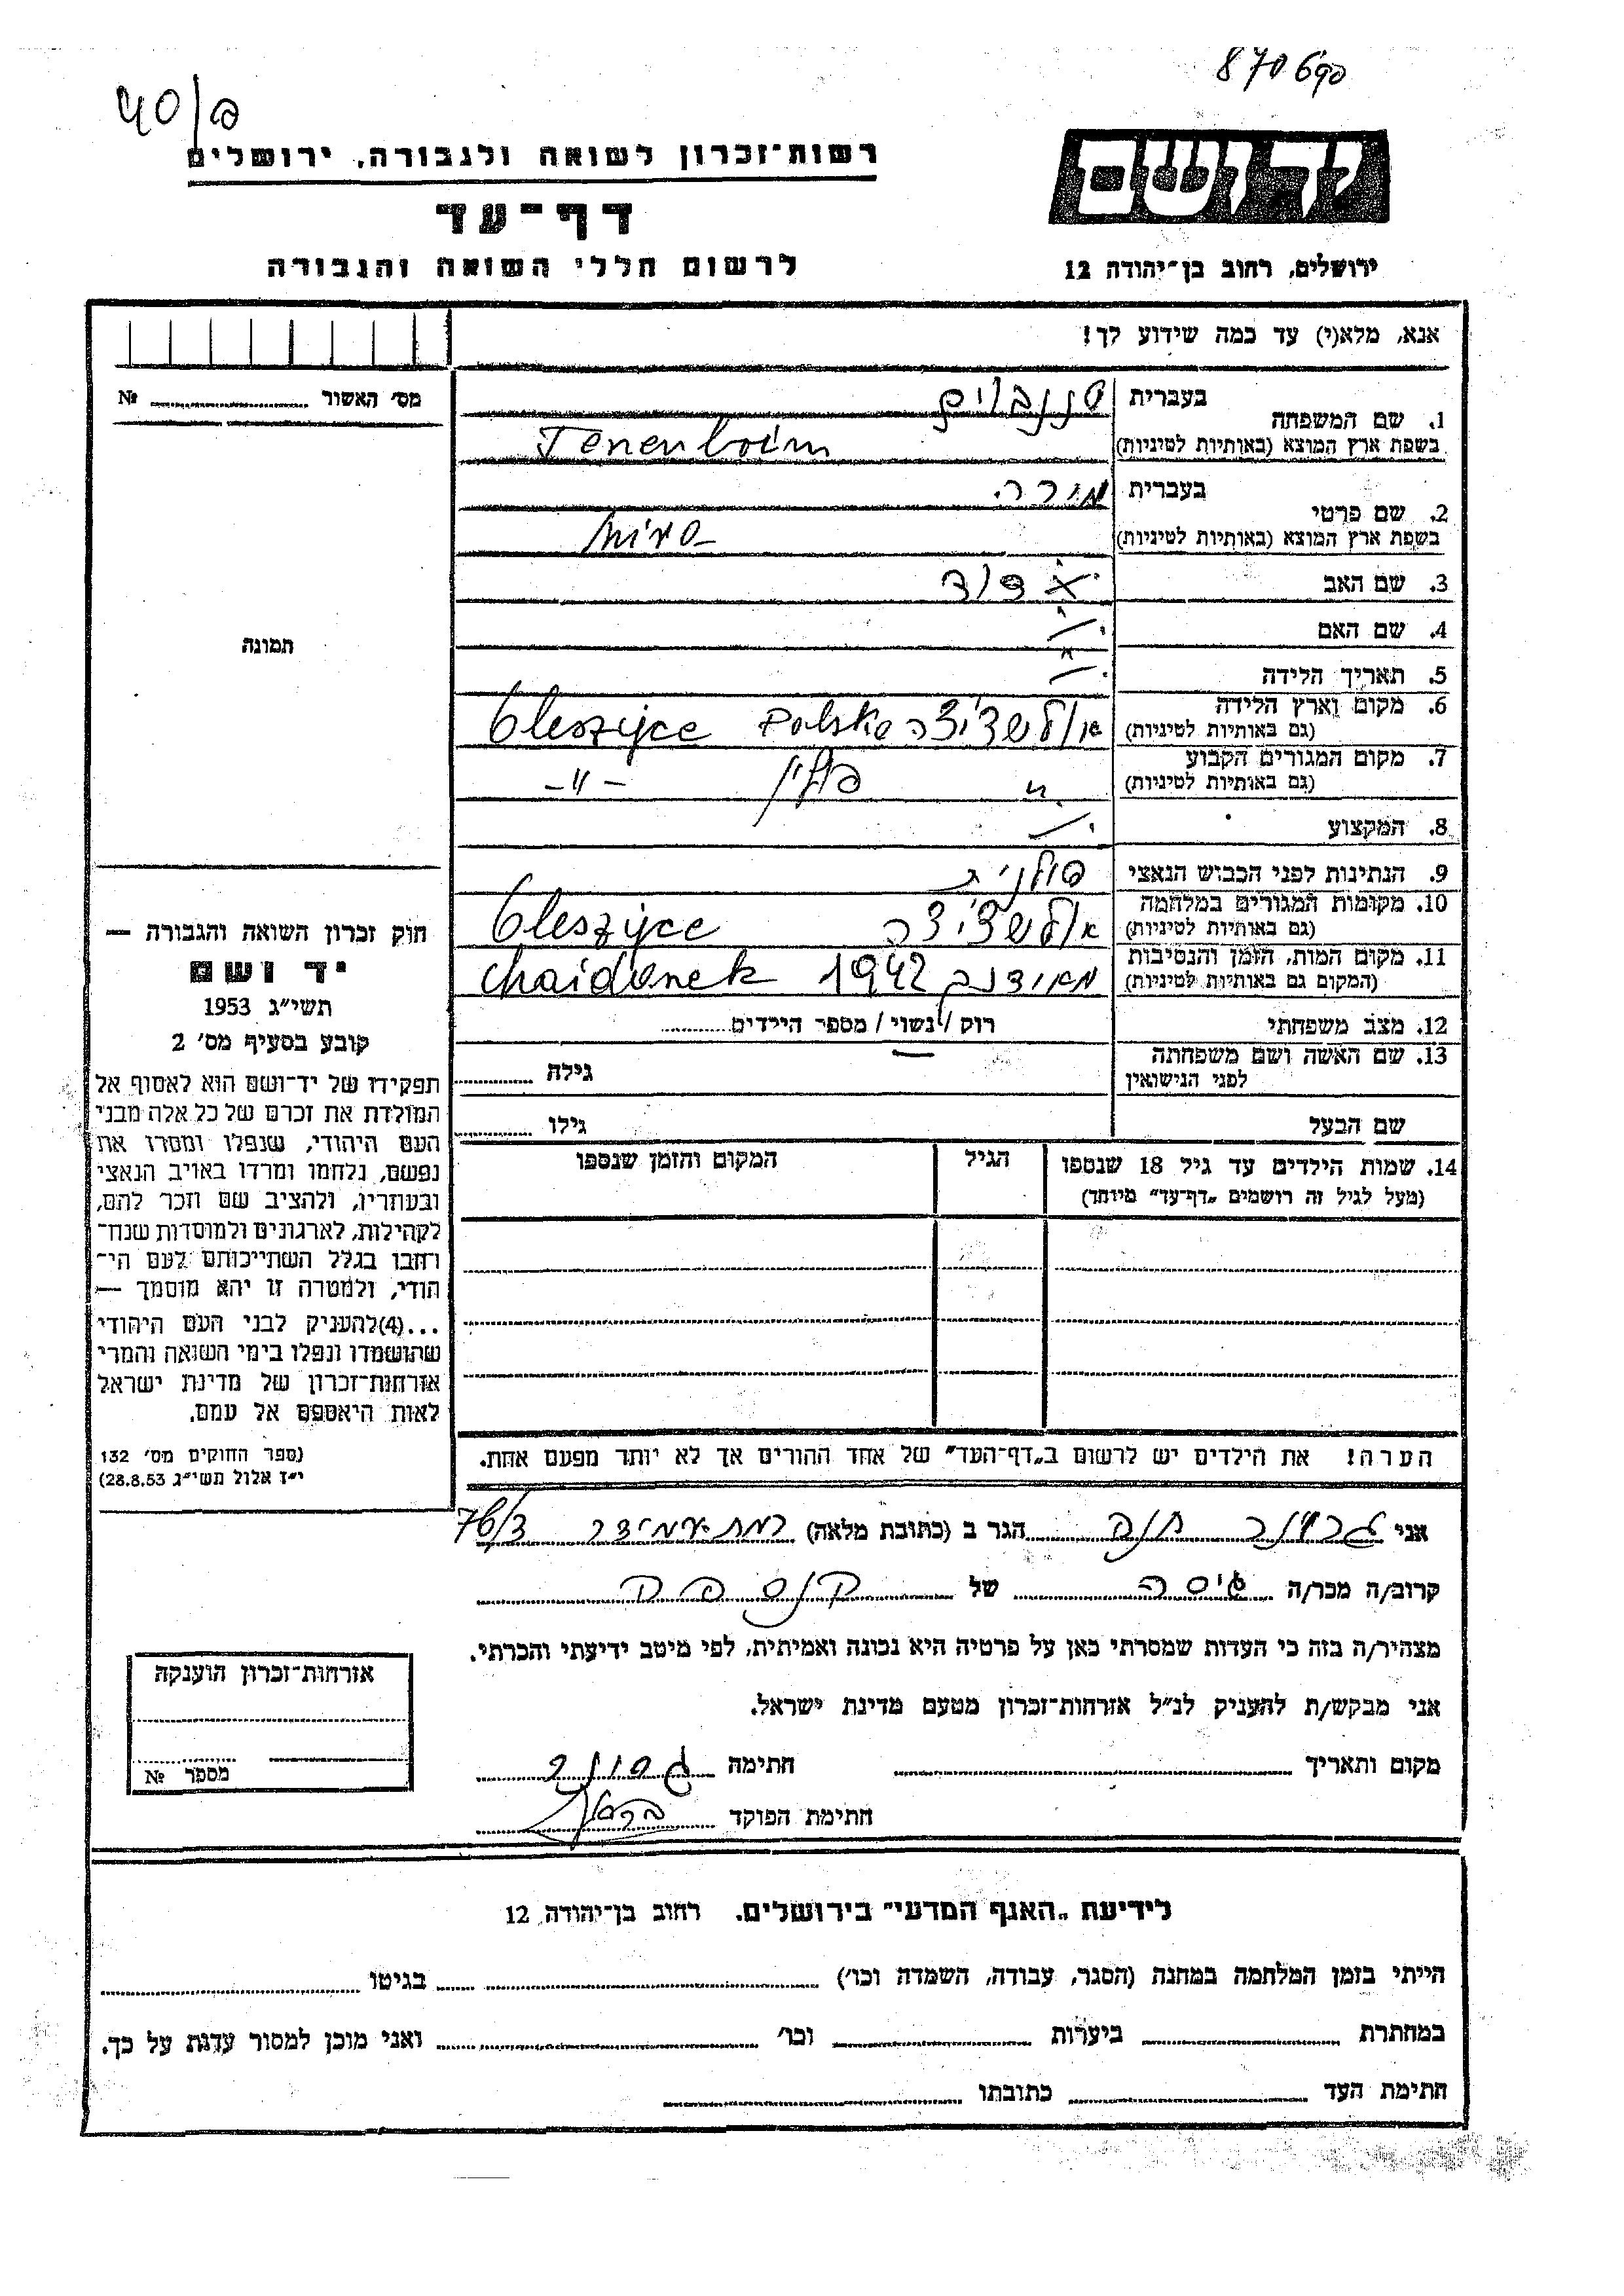 870690
40/ פ
יד ושם
רשות־זכרון לשואה ולגבורה, ירושלים
דף־עד
לרשום חללי השואה והגבורה
ירושלים, רחוב בן־יהודה 12
אנא, מלא(י) עד כמה שידוע לך!
מס׳ האשור № 
תמונה
1. שם המשפחה בעברית טננבוים
בשפת ארץ המוצא (באותיות לטיניות) Tenenboim
2. שם פרטי בעברית
בשפת ארץ המוצא (באותיות לטיניות)
3. שם האב
4. שם האם
5. תאריך הלידה
6. מקום וארץ הלידה
(גם באותיות לטיניות) אולשציצה Polska Oleszyce
7. מקום המגורים הקבוע
(גם באותיות לטיניות) פולין -״-
8. המקצוע
9. הנתינות לפני הכבוש הנאצי פולנית
10. מקומות המגורים במלחמה
(גם באותיות לטיניות) אולשציצה Oleszyce
11. מקום המות, הזמן והנסיבות
(המקום גם באותיות לטיניות) מאידנק 1942
12. מצב משפחתי רוק / נשוי / מספר הילדים
13. שם האשה ושם משפחתה
לפני הנישואין גילה
שם הבעל גילו
14. שמות הילדים עד גיל 18 שנספו הגיל המקום והזמן שנספו
(מעל לגיל זה רושמים „דף־עד״ מיוחד)
הערה! את הילדים יש לרשום ב„דף־העד״ של אחד ההורים אך לא יותר מפעם אחת.
חוק זכרון השואה והגבורה —
יד ושם
תשי״ג 1953
קובע בסעיף מס׳ 2
תפקידו של יד־ושם הוא לאסוף אל
המולדת את זכרם של כל אלה מבני
העם היהודי, שנפלו ומסרו את
נפשם, נלחמו ומרדו באויב הנאצי
ובעוזריו, ולהציב שם וזכר להם,
לקהילות, לארגונים ולמוסדות שנח־
רחבו בגלל השתייכותם לעם הי־
הודי, ולמטרה זו יהא מוסמך —
...(4)להעניק לבני העם היהודי
שהושמדו ונפלו בימי השואה והמרי
אזרחות־זכרון של מדינת ישראל
לאות היאספם אל עמם.
(ספר החוקים מס׳ 132
י״ז אלול תשי״ג 28.8.53)
אני חנה הגר ב (כתובת מלאה) רמת־עמידר 76/3
קרוב/ה מכר/ה גיסה של
מצהיר/ה בזה כי העדות שמסרתי כאן על פרטיה היא נכונה ואמיתית, לפי מיטב ידיעתי והכרתי.
אני מבקש/ת להעניק לנ״ל אזרחות־זכרון מטעם מדינת ישראל.
מקום ותאריך חתימה
חתימת הפוקד
אזרחות־זכרון הוענקה
מספר №
לידיעת „האגף המדעי״ בירושלים. רחוב בן־יהודה 12
הייתי בזמן המלחמה במחנה (הסגר, עבודה, השמדה וכו׳) בגיטו
במחתרת ביערות וכו׳ ואני מוכן למסור עדות על כך.
חתימת העד כתובתו